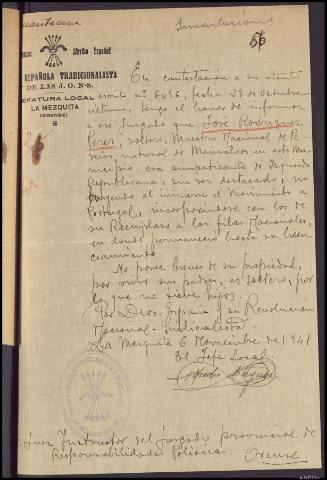 Incautaciones
56
¡Arriba España!
ESPAÑOLA TRADICIONALISTA
DE LAS J. O. N-S.
JEFATURA LOCAL
LA MEZQUITA
(ORENSE)
En contestacion a su atento
escrito nº 6.036, fecha 28 de Octubre
ultimo, tengo el honor de informar
a ese Juzgado que José Rodriguez
Perez, soltero, Maestro Nacional de
natural de Manzalvos en este Mu-
nicipio, era simpatizante de Izquierda
Republicana, sin ser destacado,
al iniciarse el Movimiento a
Portugal, incorporándose con los de
su Reemplazo a las filas Nacionales,
en donde permaneció hasta su licen-
ciamiento.
No posee bienes de su propiedad,
por vivir sus padres, es soltero, por
lo que no tiene hijos.
Por Dios, España y su Revolucion
Nacional-Sindicalista.
La Mezquita 6 Noviembre de 1941
El Jefe Local.
Juez Instructor del Juzgado provincial de
Responsabilidades Politicas Orense